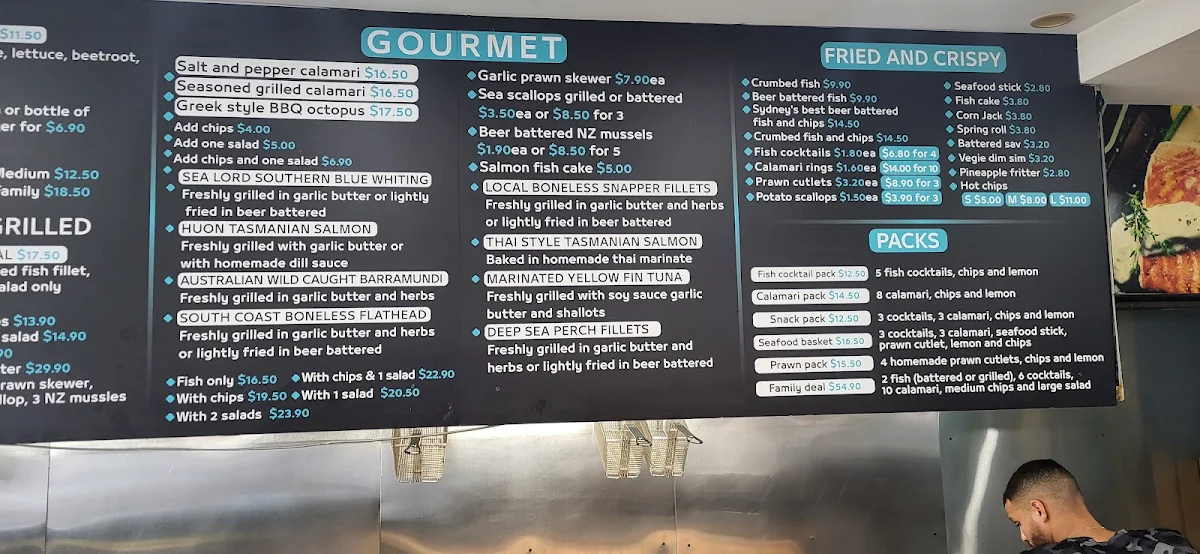 $11.50
, lettuce, beetroot,
or bottle of
er for $6.90
Medium $12.50
Family $18.50
GRILLED
AL $17.50
ed fish fillet,
alad only
s $13.90
salad $14.90
90
ter $29.90
rawn skewer,
llop, 3 NZ mussles
GOURMET
Salt and pepper calamari $16.50
Seasoned grilled calamari $16.50
Greek style BBQ octopus $17.50
Add chips $4.00
Add one salad $5.00
Add chips and one salad $6.90
SEA LORD SOUTHERN BLUE WHITING
Freshly grilled in garlic butter or lightly
fried in beer battered
HUON TASMANIAN SALMON
Freshly grilled with garlic butter or
with homemade dill sauce
AUSTRALIAN WILD CAUGHT BARRAMUNDI
Freshly grilled in garlic butter and herbs
SOUTH COAST BONELESS FLATHEAD
Freshly grilled in garlic butter and herbs
or lightly fried in beer battered
Fish only $16.50 With chips & 1 salad $22.90
With chips $19.50 With 1 salad $20.50
With 2 salads $23.90
Garlic prawn skewer $7.90ea
Sea scallops grilled or battered
$3.50ea or $8.50 for 3
Beer battered NZ mussels
$1.90ea or $8.50 for 5
Salmon fish cake $5.00
LOCAL BONELESS SNAPPER FILLETS
Freshly grilled in garlic butter and herbs
or lightly fried in beer battered
THAI STYLE TASMANIAN SALMON
Baked in homemade thai marinate
MARINATED YELLOW FIN TUNA
Freshly grilled with soy sauce garlic
butter and shallots
DEEP SEA PERCH FILLETS
Freshly grilled in garlic butter and
herbs or lightly fried in beer battered
FRIED AND CRISPY
Crumbed fish $9.90
Beer battered fish $9.90
Sydney's best beer battered
fish and chips $14.50
Crumbed fish and chips $14.50
Fish cocktails $1.80ea $6.80 for 4
Calamari rings $1.60ea $14.00 for 10
Prawn cutlets $3.20ea $8.90 for 3
Potato scallops $1.50ea $3.90 for 3
Seafood stick $2.80
Fish cake $3.80
Corn Jack $3.80
Spring roll $3.80
Battered sav $3.20
Vegie dim sim $3.20
Pineapple fritter $2.80
Hot chips
S $5.00 M $8.00 L $11.00
PACKS
Fish cocktail pack $12.50 5 fish cocktails, chips and lemon
Calamari pack $14.50 8 calamari, chips and lemon
Snack pack $12.50 3 cocktails, 3 calamari, chips and lemon
Seafood basket $16.50 3 cocktails, 3 calamari, seafood stick,
prawn cutlet, lemon and chips
Prawn pack $15.50 4 homemade prawn cutlets, chips and lemon
Family deal $54.90 2 fish (battered or grilled), 6 cocktails,
10 calamari, medium chips and large salad